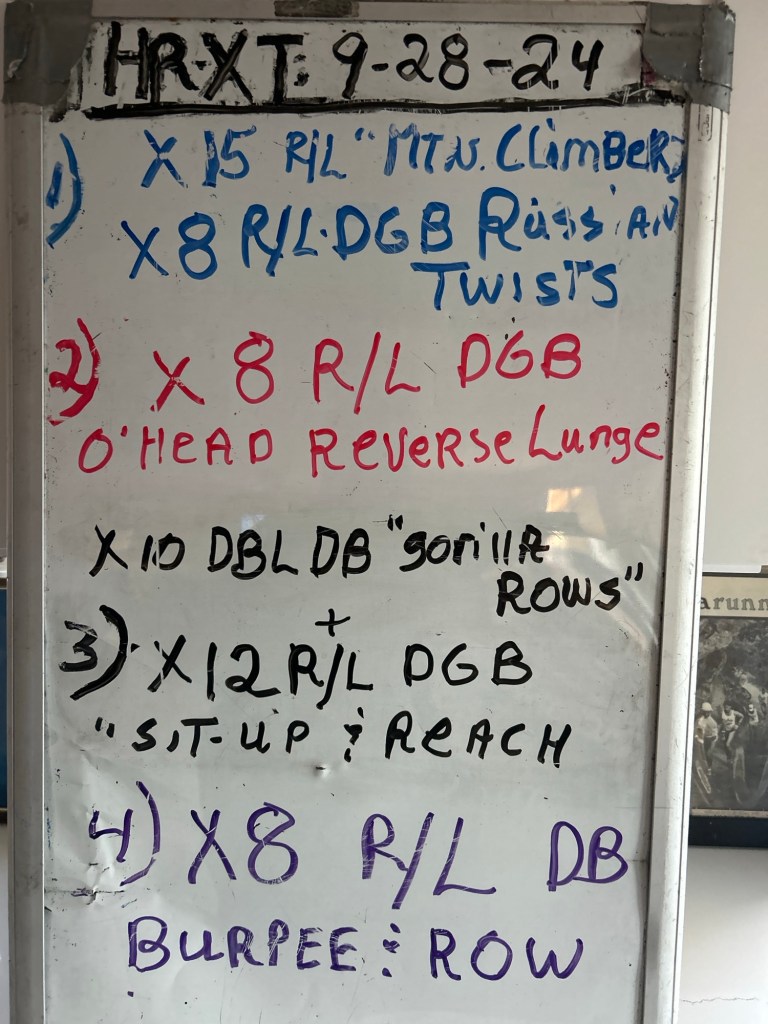 HR-XT: 9-28-24
1) X 15 R/L "MTN. CLimBERS
X8 R/L·DGB Russian
TWISTS
2) X 8 R/L DGB
O'HEAD ReVeRSe Lunge
X 10 DBL DB "gorillA
ROWS"
+
3) X 12 R/L DGB
"SIT-UP & ReACH
4) X8 R/L DB
BURPEE & ROW
arunn